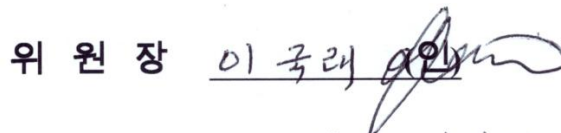 위 원 장 이 국 래 (인)